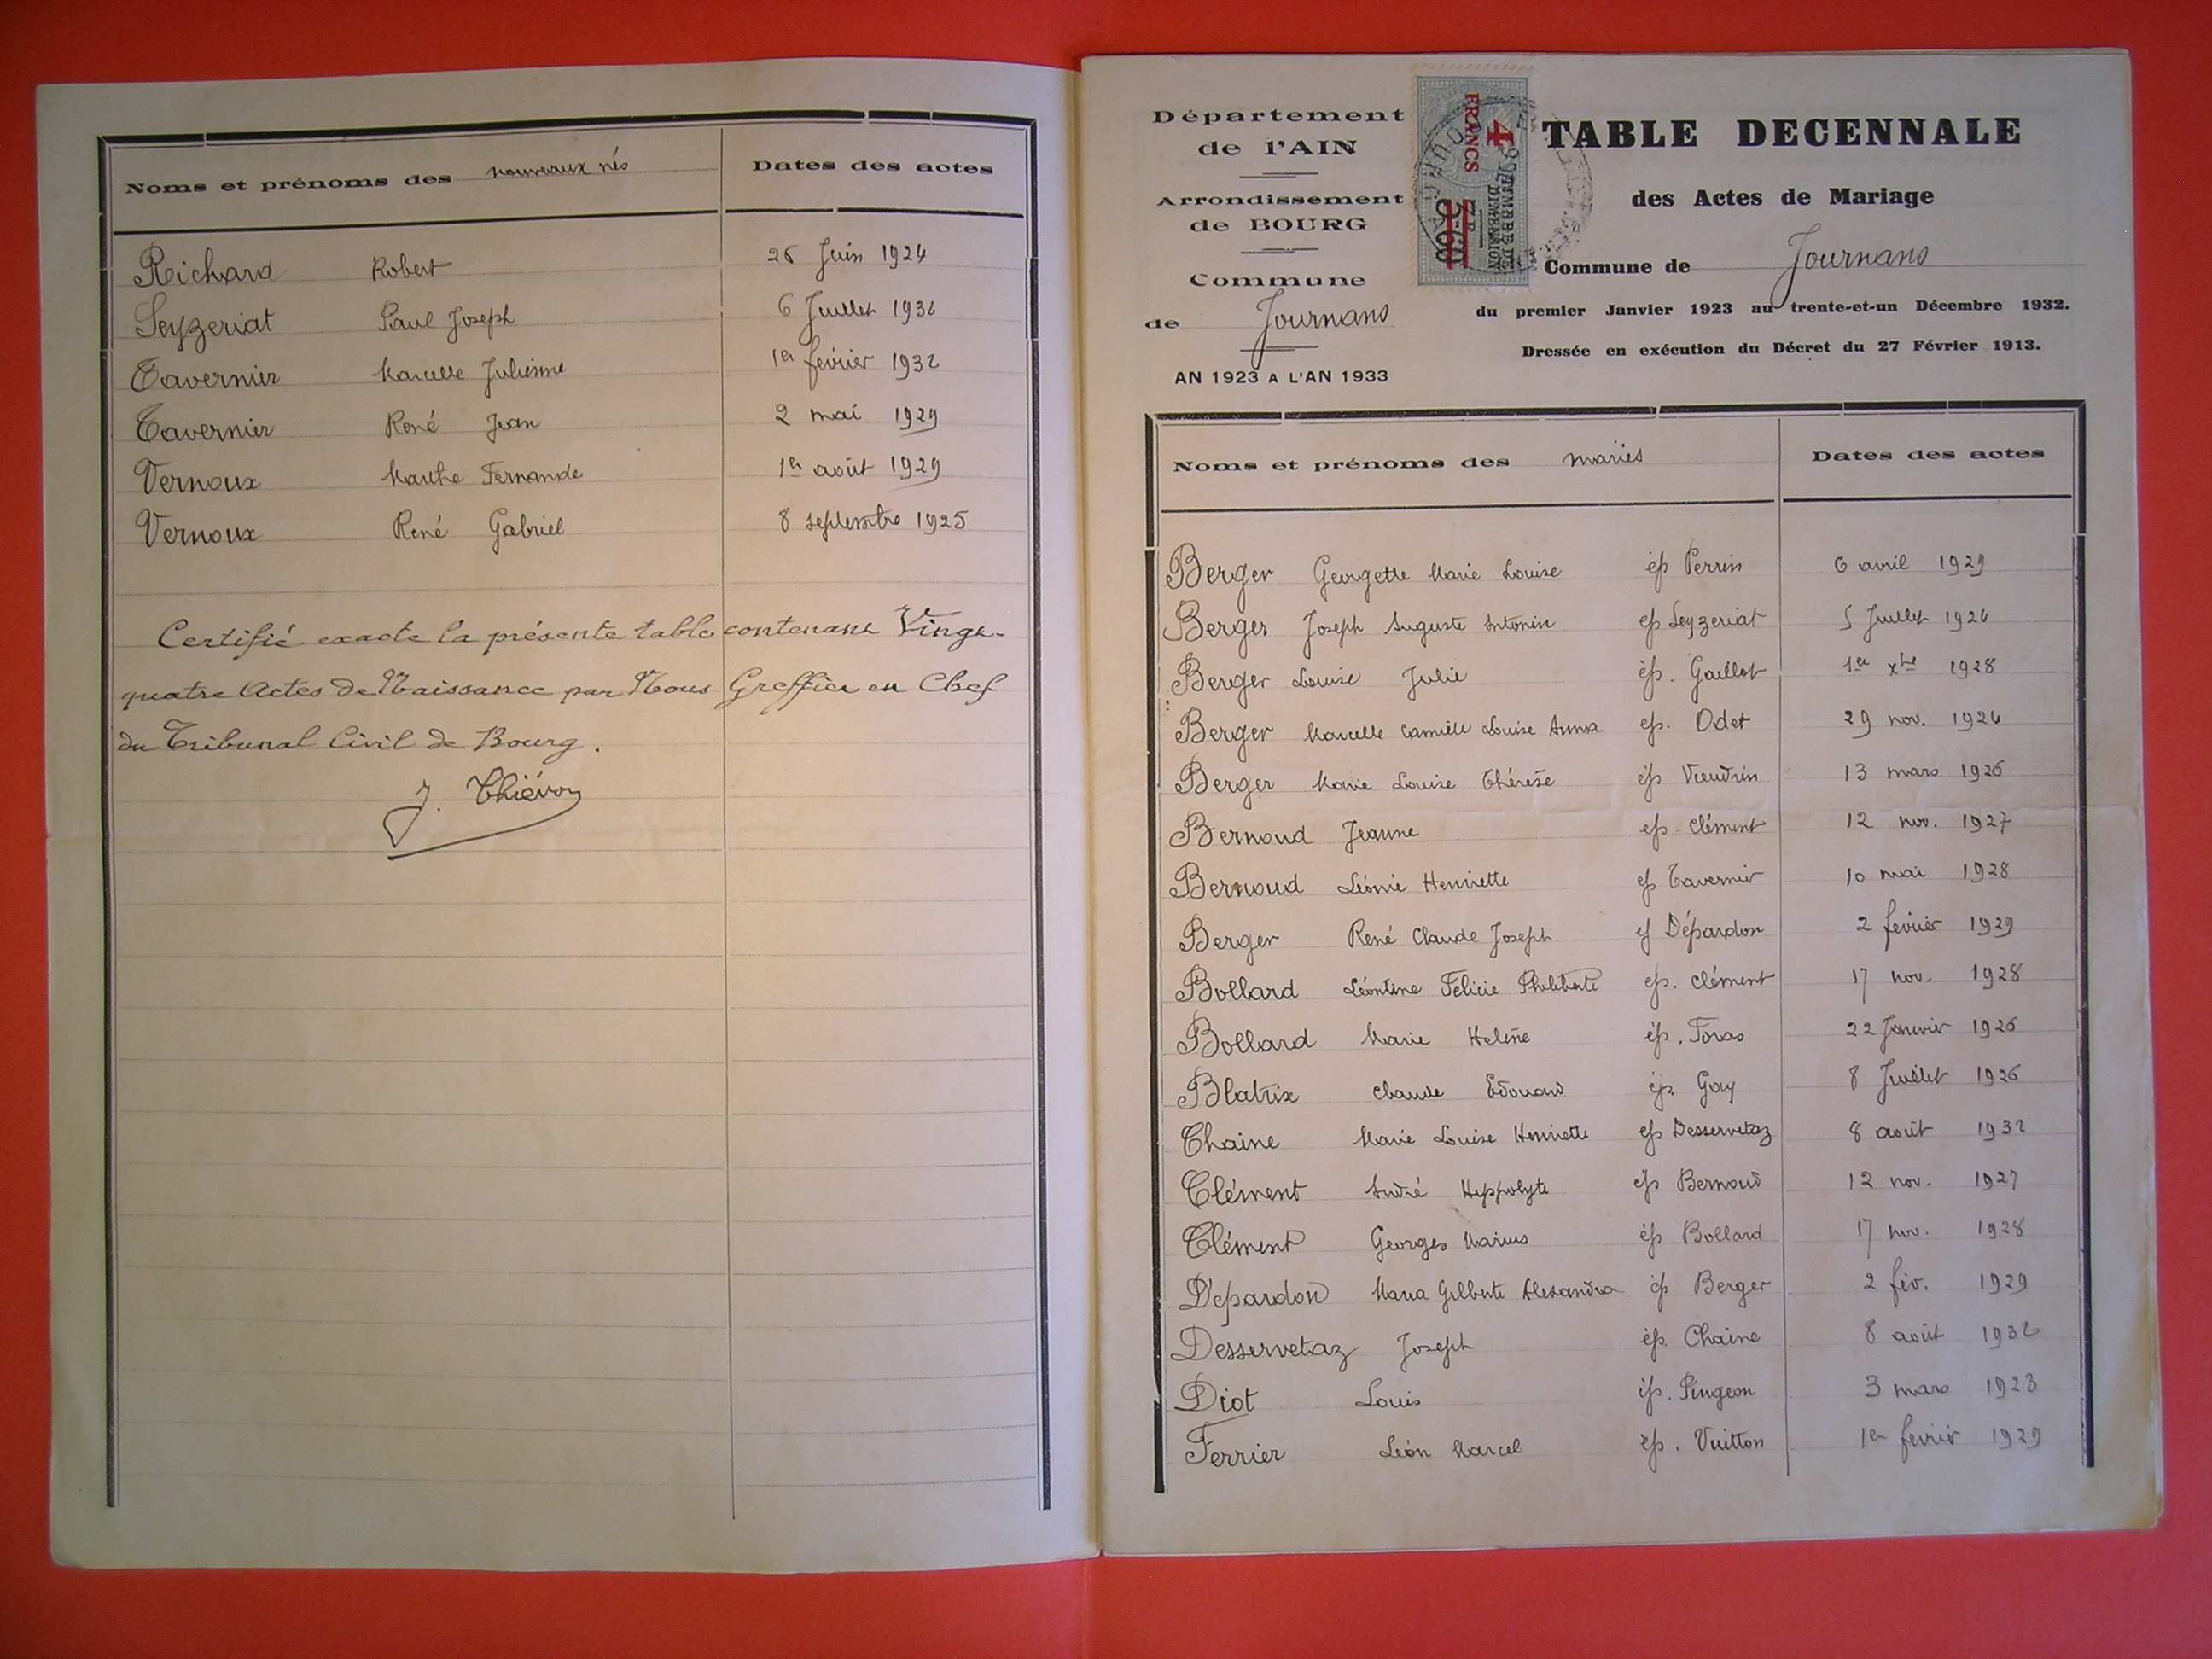 Noms et prénoms des nouveaux nés Dates des actes
Richard Robert 26 Juin 1924
Seyzeriat Paul Joseph 6 Juillet 1931
Tavernier Marcelle Julienne 1er février 1932
Tavernier René Jean 2 mai 1929
Vernoux Marthe Fernande 1er août 1929
Vernoux René Gabriel 8 septembre 1925
Certifié exacte la présente table contenant Vingt-
quatre Actes de Naissance par Nous Greffier en Chef
du Tribunal Civil de Bourg.
J. Thiévon
Département
de l'AIN
Arrondissement
de BOURG
Commune
de Journans
AN 1923 A L'AN 1933
4
FRANCS
TIMBRE DE
DIMENSION
TABLE DECENNALE
des Actes de Mariage
Commune de Journans
du premier Janvier 1923 au trente-et-un Décembre 1932.
Dressée en exécution du Décret du 27 Février 1913.
Noms et prénoms des mariés Dates des actes
Berger Georgette Marie Louise ép Perrin 6 avril 1929
Berger Joseph Auguste Antonin ép Seyzeriat 5 Juillet 1924
Berger Louise Julie ép. Gaillot 1er xbre 1928
Berger Marcelle Camille Louise Anna ép. Odet 29 nov. 1924
Berger Marie Louise Thérèse ép Vieudrin 13 mars 1926
Bernoud Jeanne ép. Clément 12 nov. 1927
Bernoud Léonie Henriette ép Tavernier 10 mai 1928
Berger René Claude Joseph ép Dépardon 2 février 1929
Bollard Léontine Félicie Philiberte ép. Clément 17 nov. 1928
Bollard Marie Helène ép. Foras 22 Janvier 1926
Blatrix Claude Edouard ép. Goy 8 Juillet 1926
Chaine Marie Louise Henriette ép Desservetaz 8 août 1932
Clément André Hyppolyte ép Bernoud 12 nov. 1927
Clément Georges Marius ép Bollard 17 nov. 1928
Dépardon Maria Gilberte Alexandra ép Berger 2 fév. 1929
Desservetaz Joseph ép. Chaine 8 août 1932
Diot Louis ép. Pingeon 3 mars 1923
Ferrier Léon Marcel ép. Vuitton 1er février 1929